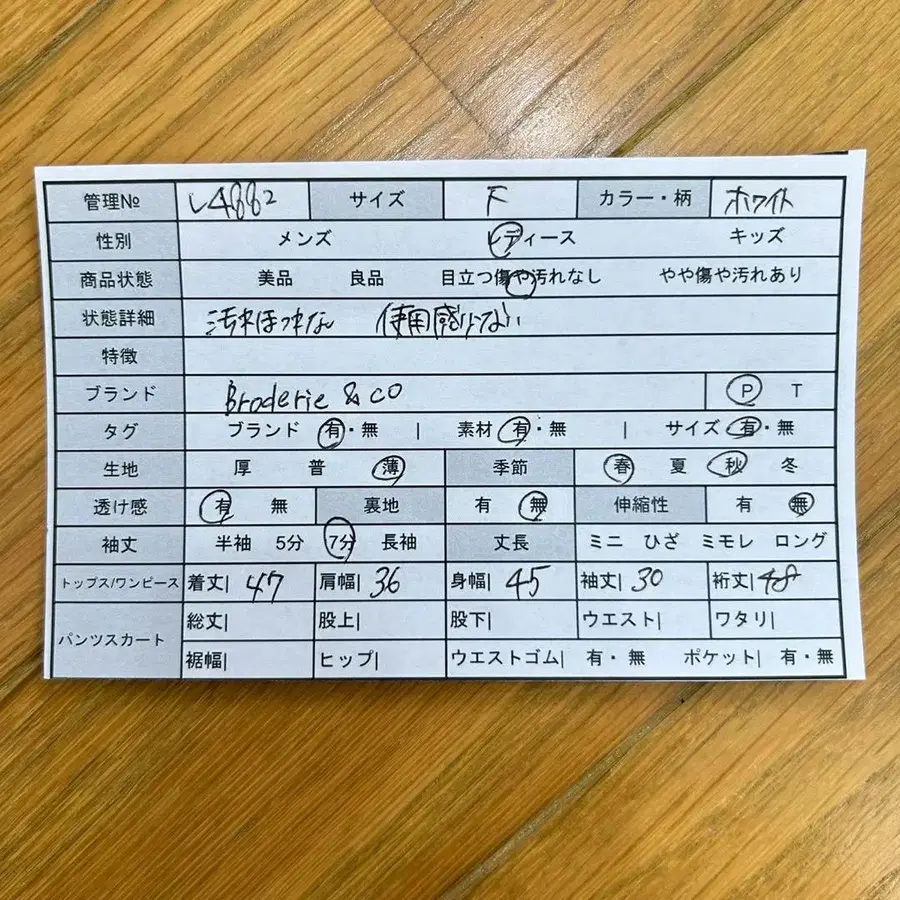 管理№ L4882 サイズ F カラー・柄 ホワイト
性別 メンズ レディース キッズ
商品状態 美品 良品 目立つ傷や汚れなし やや傷や汚れあり
状態詳細 汚れほつれなし 使用感少ない
特徴
ブランド Broderie & co P T
タグ ブランド 有・無 | 素材 有・無 | サイズ 有・無
生地 厚 普 薄 季節 春 夏 秋 冬
透け感 有 無 裏地 有 無 伸縮性 有 無
袖丈 半袖 5分 7分 長袖 丈長 ミニ ひざ ミモレ ロング
トップス/ワンピース 着丈| 47 肩幅| 36 身幅| 45 袖丈| 30 裄丈| 48
パンツスカート 総丈| 股上| 股下| ウエスト| ワタリ|
裾幅| ヒップ| ウエストゴム| 有・無 ポケット| 有・無